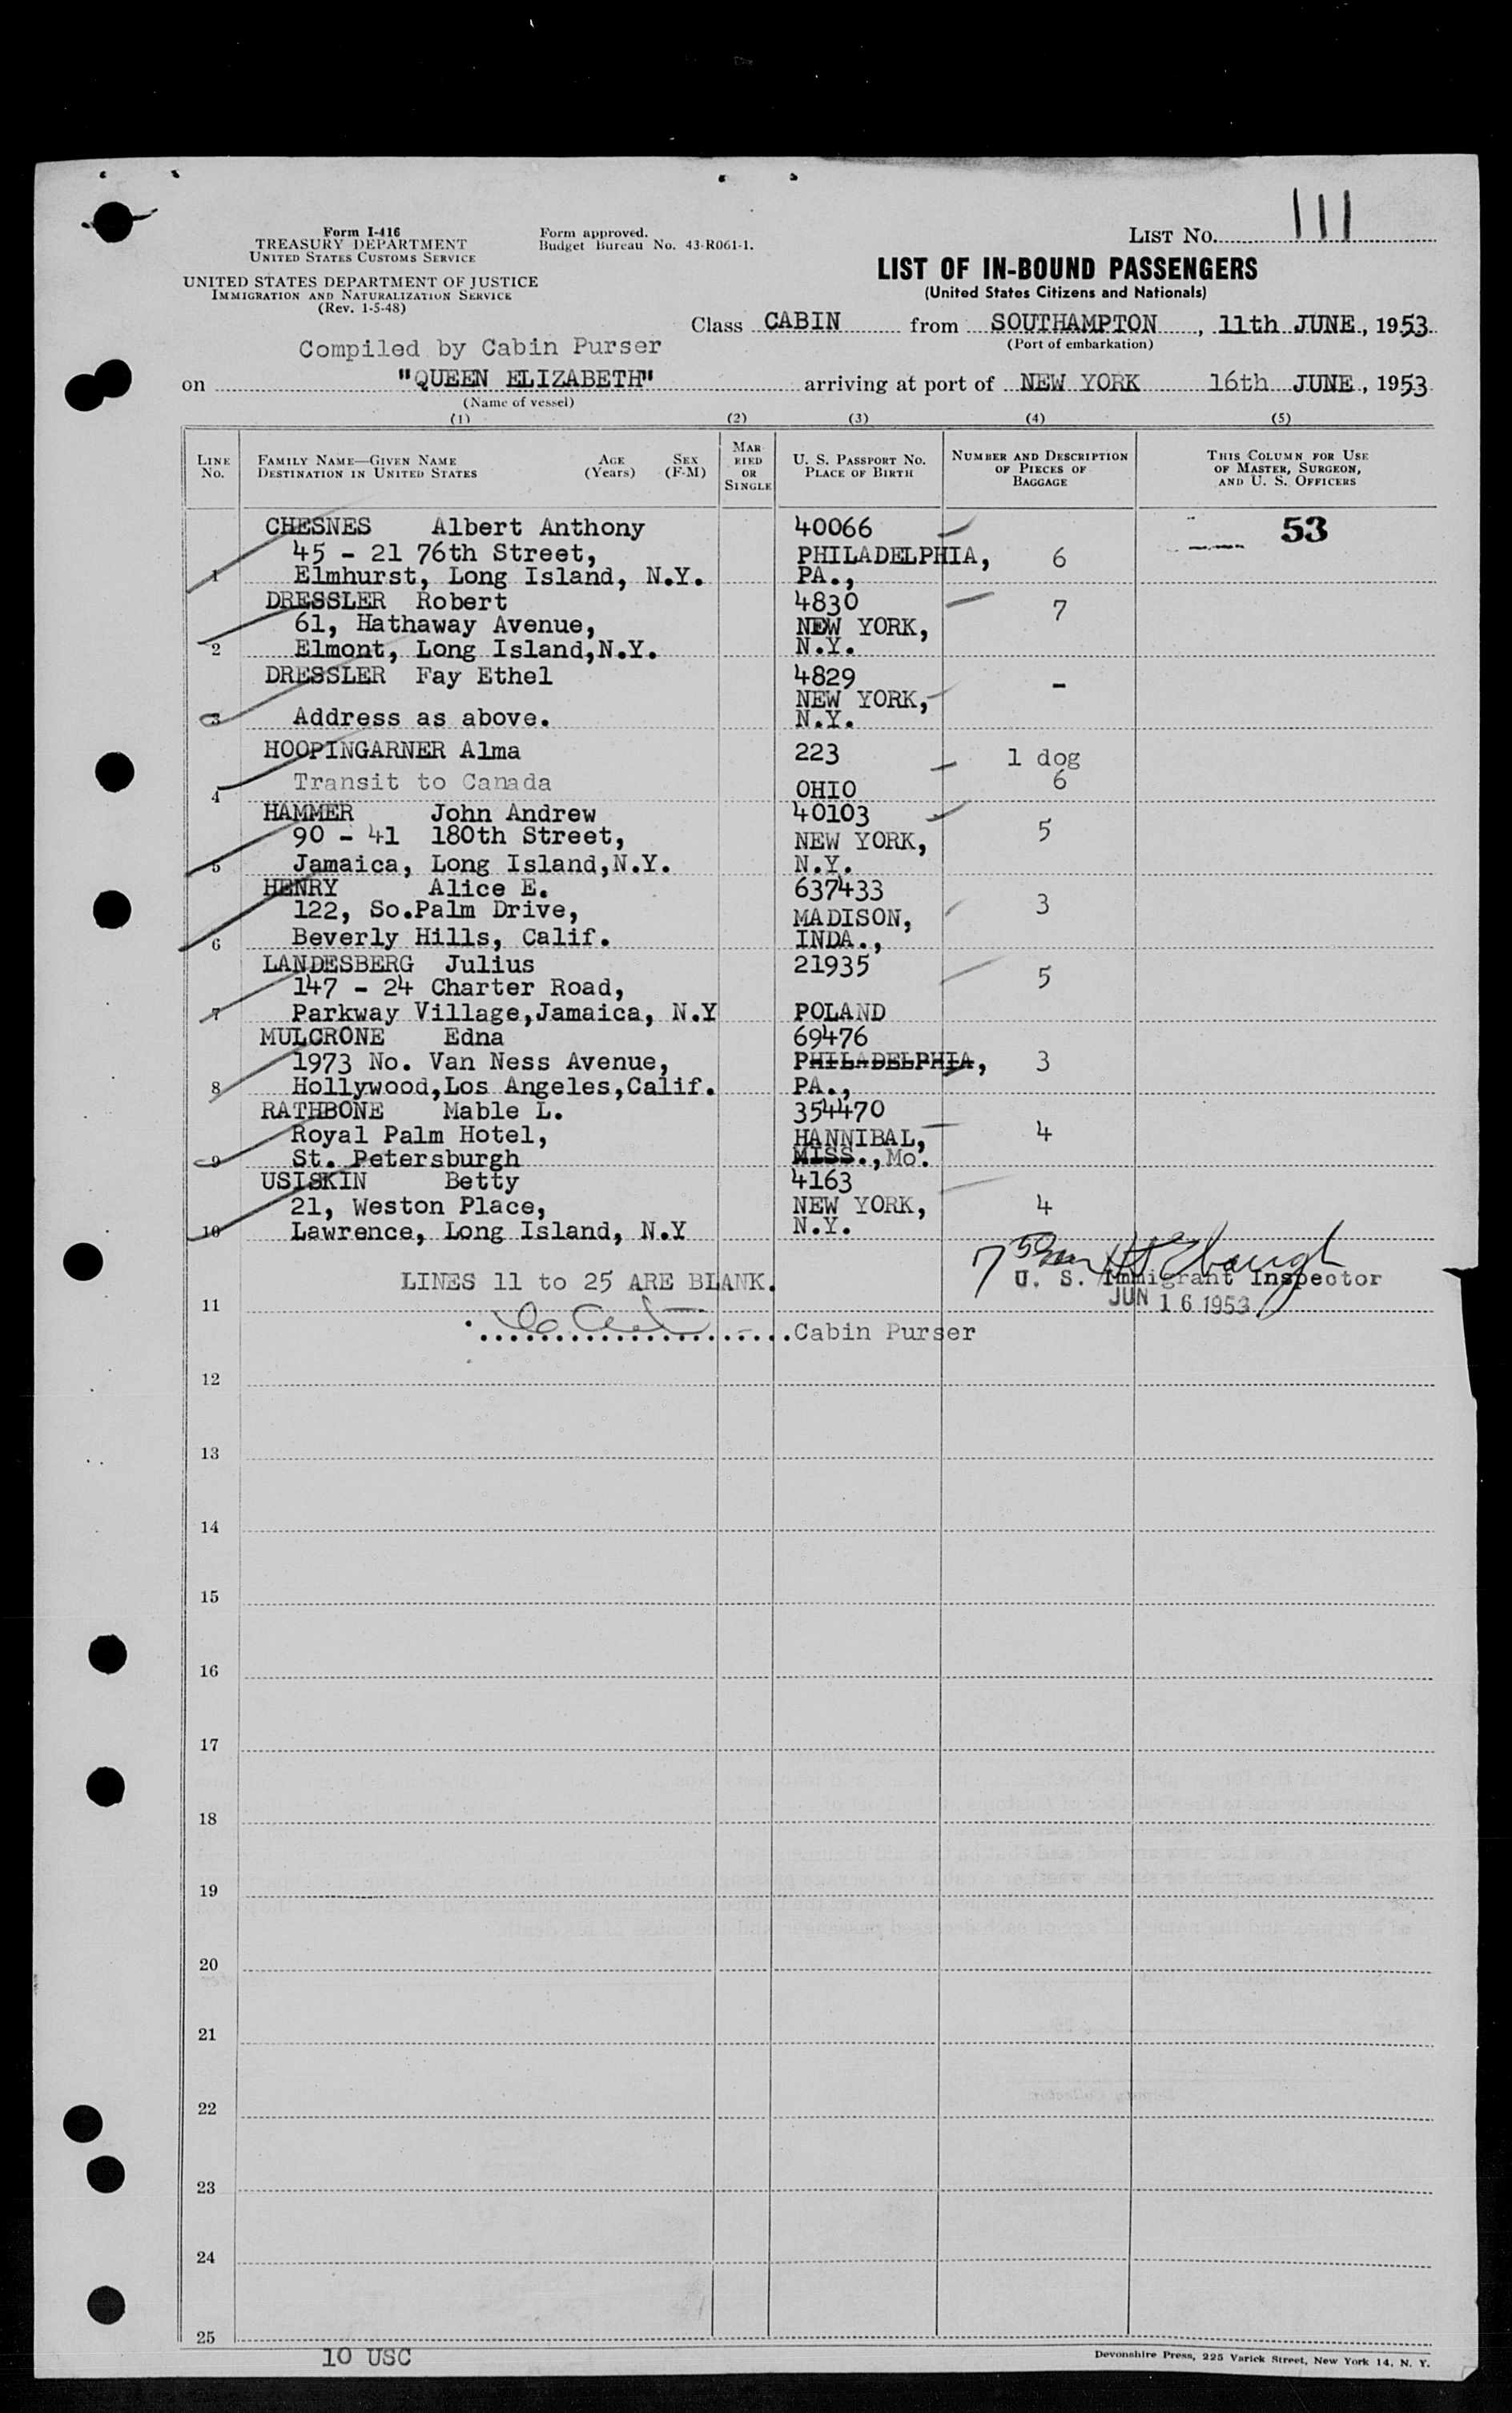 LIST NO. 111
Form I-416
TREASURY DEPARTMENT
UNITED STATES CUSTOMS SERVICE
Form approved.
Budget Bureau No. 43-R061-1.
UNITED STATES DEPARTMENT OF JUSTICE
IMMIGRATION AND NATURALIZATION SERVICE
(Rev. 1-5-48)
LIST OF IN-BOUND PASSENGERS
(United States Citizens and Nationals)
Class CABIN from SOUTHAMPTON, 11th JUNE, 1953
(Port of embarkation)
Compiled by Cabin Purser
on "QUEEN ELIZABETH" arriving at port of NEW YORK 16th JUNE, 1953
(Name of vessel)
(1) (2) (3) (4) (5)
LINE No.
FAMILY NAME—GIVEN NAME
DESTINATION IN UNITED STATES
AGE (Years)
SEX (F-M)
MARRIED OR SINGLE
U. S. PASSPORT NO.
PLACE OF BIRTH
NUMBER AND DESCRIPTION OF PIECES OF BAGGAGE
THIS COLUMN FOR USE OF MASTER, SURGEON, AND U. S. OFFICERS
CHESNES Albert Anthony 40066 53
45 - 21 76th Street, PHILADELPHIA, 6
1 Elmhurst, Long Island, N.Y. PA.,
DRESSLER Robert 4830 7
61, Hathaway Avenue, NEW YORK,
2 Elmont, Long Island,N.Y. N.Y.
DRESSLER Fay Ethel 4829 -
NEW YORK,
3 Address as above. N.Y.
HOOPINGARNER Alma 223 1 dog
4 Transit to Canada OHIO 6
HAMMER John Andrew 40103
90 - 41 180th Street, NEW YORK, 5
5 Jamaica, Long Island,N.Y. N.Y.
HENRY Alice E. 637433
122, So.Palm Drive, MADISON, 3
6 Beverly Hills, Calif. INDA.,
LANDESBERG Julius 21935 5
147 - 24 Charter Road,
7 Parkway Village,Jamaica, N.Y POLAND
MULCRONE Edna 69476
1973 No. Van Ness Avenue, PHILADELPHIA, 3
8 Hollywood,Los Angeles,Calif. PA.,
RATHBONE Mable L. 354470
Royal Palm Hotel, HANNIBAL, 4
9 St. Petersburgh MISS., Mo.
USISKIN Betty 4163
21, Weston Place, NEW YORK, 4
10 Lawrence, Long Island, N.Y N.Y.
LINES 11 to 25 ARE BLANK.
U. S. Immigrant Inspector
JUN 16 1953
11
Cabin Purser
12
13
14
15
16
17
18
19
20
21
22
23
24
25
10 USC
Devonshire Press, 225 Varick Street, New York 14, N. Y.